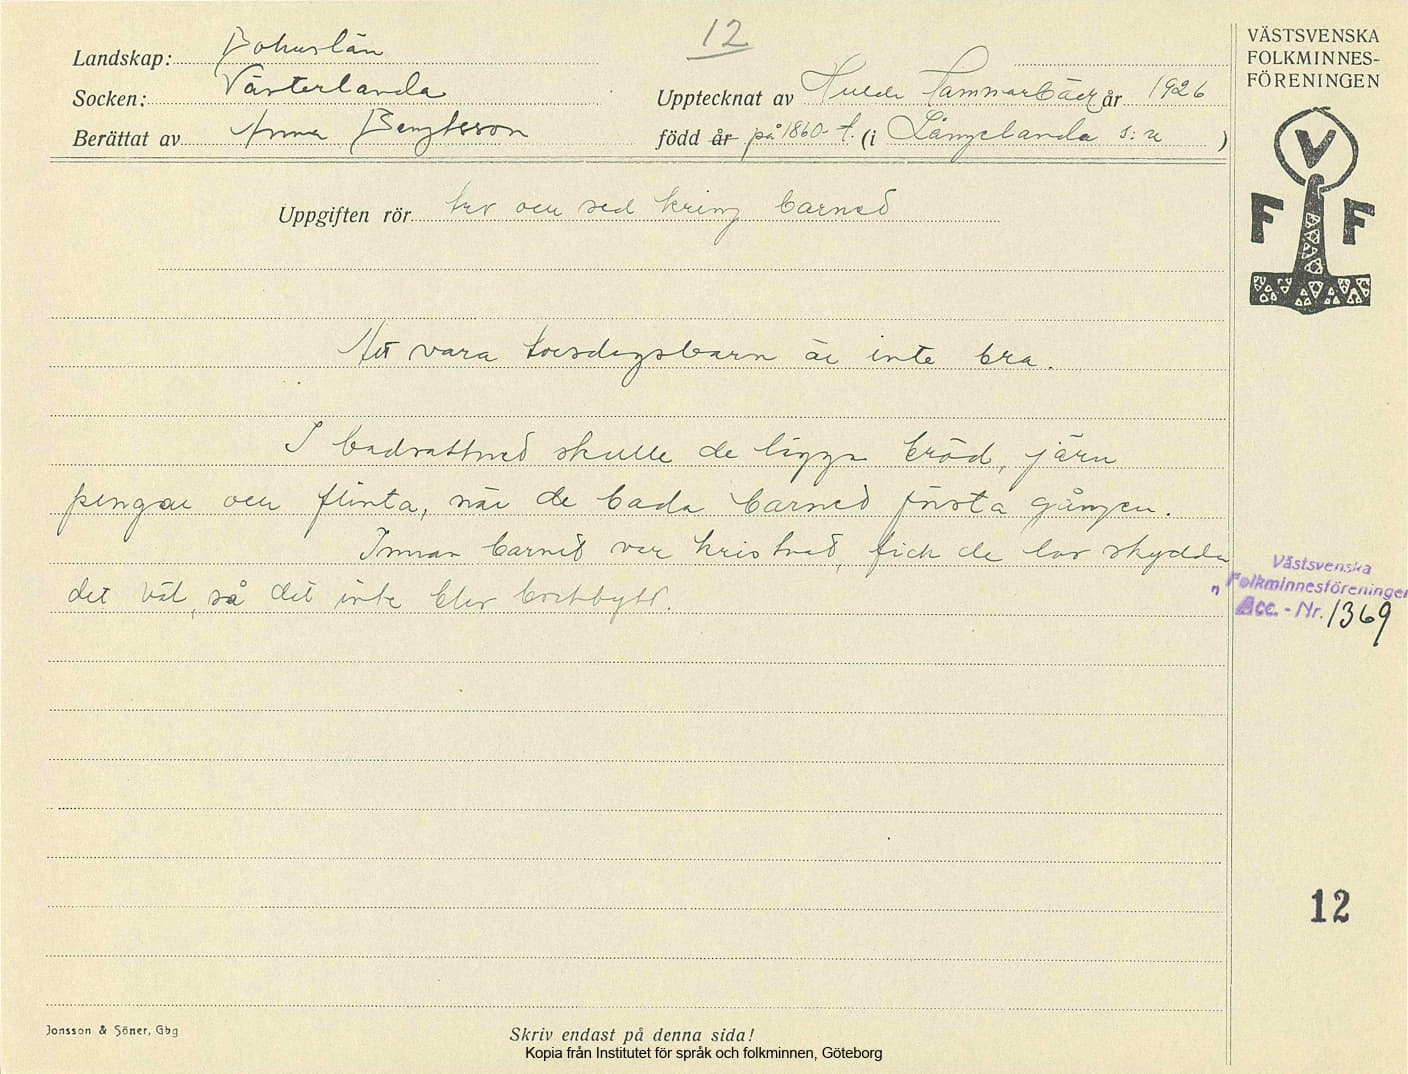 12
VÄSTSVENSKA
FOLKMINNES-
FÖRENINGEN
Landskap: Bohuslän
Socken: Västerlanda
Berättat av Anna Bengtsson
Upptecknat av Hulda Hammarbäck år 1926
född år på 1860-t. (i Långelanda s:n )
V
F F
Uppgiften rör tro och sed kring barned
Att vara torsdagsbarn är inte bra.
I badvattned skulle de ligga bröd, järn
pengar och flinta, när de bada barned första gången.
Innan barned var kristnad, fick de lov skydda
det väl, så det inte blev bortbytt.
Västsvenska
Folkminnesföreningen
Acc. - Nr. 1369
12
Jonsson & Söner, Gbg
Skriv endast på denna sida!
Kopia från Institutet för språk och folkminnen, Göteborg